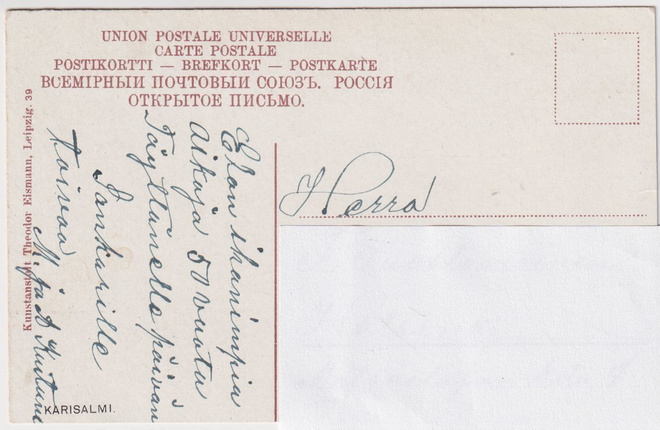 UNION POSTALE UNIVERSELLE
CARTE POSTALE
POSTIKORTTI — BREFKORT — POSTKARTE
ВСЕМІРНЫИ ПОЧТОВЫИ СОЮЗЪ. РОССІЯ
ОТКРЫТОЕ ПИСЬМО.
Kunstanstalt Theodor Eismann, Leipzig. 39
Elon ihanimpia
Aikoja 50 vuotta
Täyttäneelle päivän
Sankarille
toivoo
M. ja A
Herra
KARISALMI.